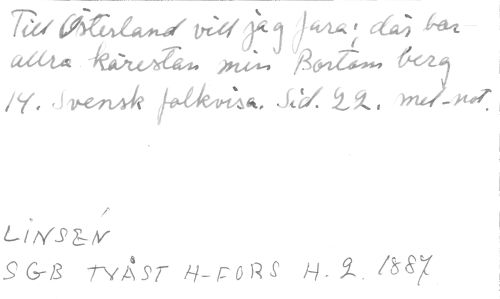 Till Österland vill jag fara; där bor
allra kärestan min Bortom berg
14. Svensk folkvisa. Sid. 22. mel-not.
LINSÉN
SGB TVÅST H-FORS H. 2. 1887